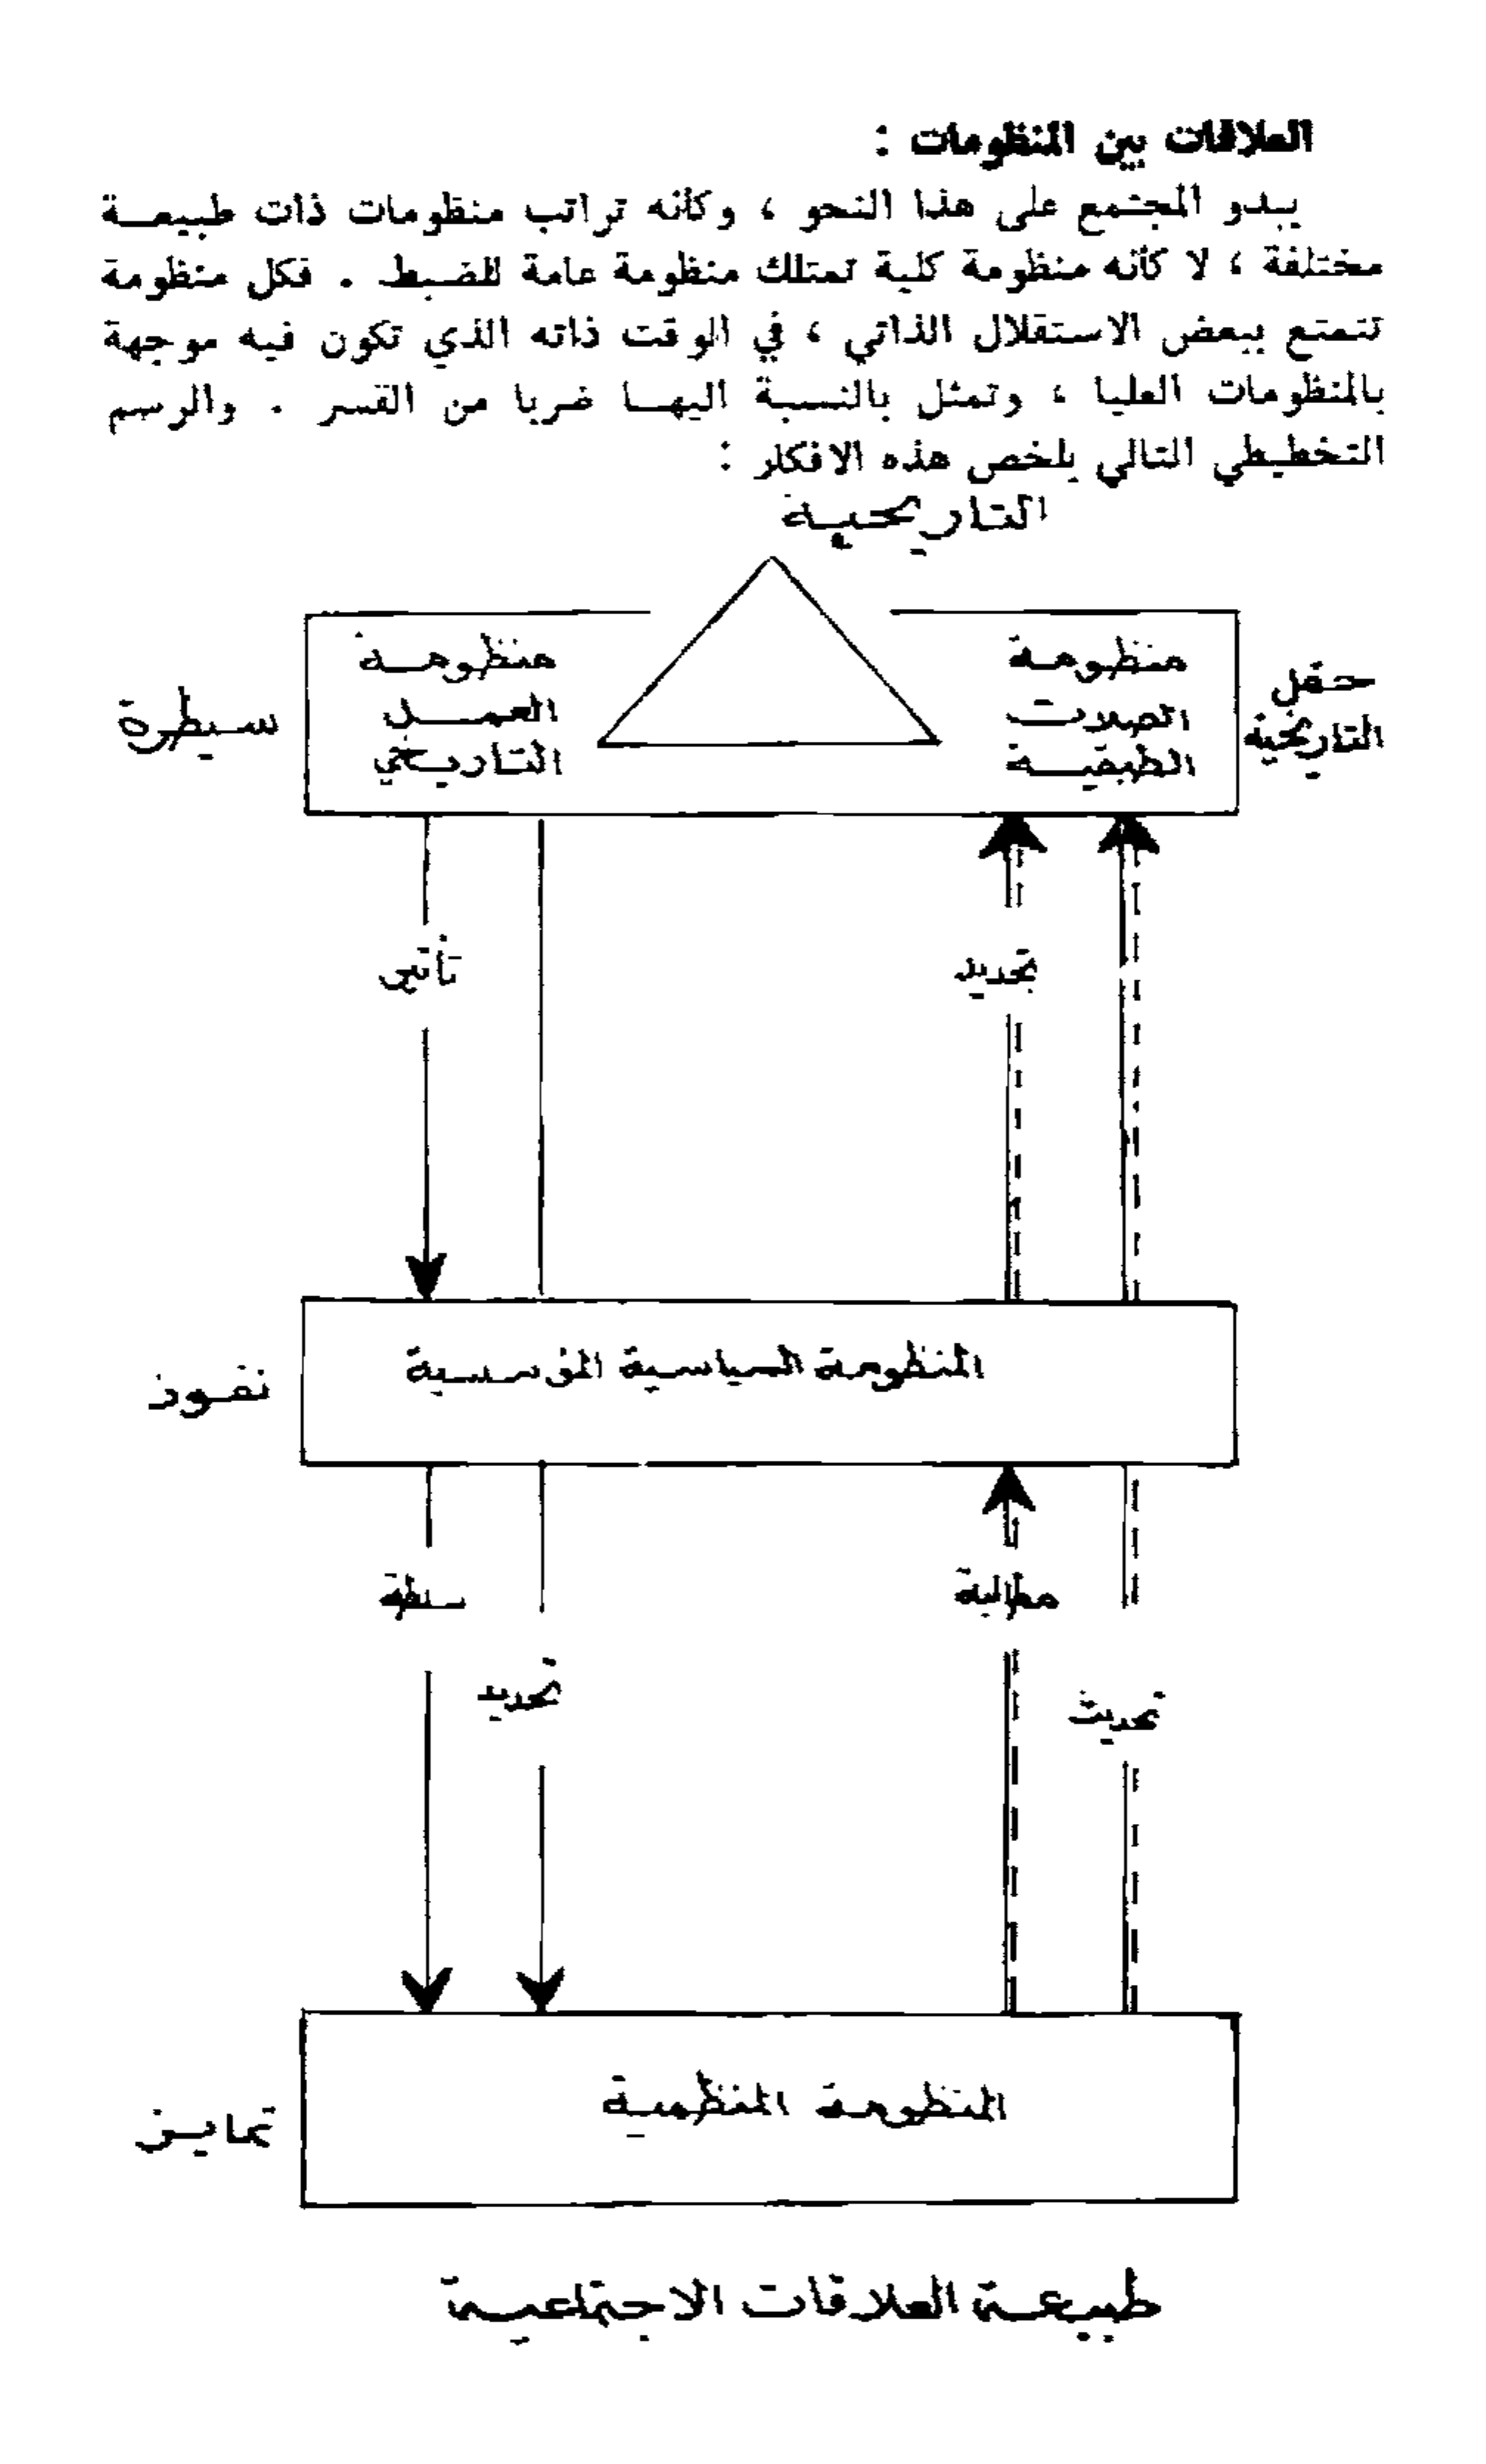 العلاقات بين المنظومات :
يبدو المجتمع على هذا النحو ، وكأنه تراتب منظومات ذات طبيعـــة
مختلفة ، لا كأنه منظومة كلية تمتلك منظومة عامة للضبط . فكل منظومة
تتمتع ببعض الاستقلال الذاتي ، في الوقت ذاته الذي تكون فيه موجهة
بالمنظومات العليا ، وتمثل بالنسبة اليهــا ضربا من القسر . والرسم
التخطيطي التالي يلخص هذه الافكار :
التاريخيـة
حقل
التاريخية
منظومـة
الصلات
الطبقيـة
منظومـة
العمـل
التاريخي
سيطرة
تجديد
تأثير
المنظومة السياسية المؤسسية
نفـوذ
مطالبة
سلطة
تحديث
تحديد
المنظومـة المنظمية
تمايـز
طبيعـة العلاقات الاجتماعيـة